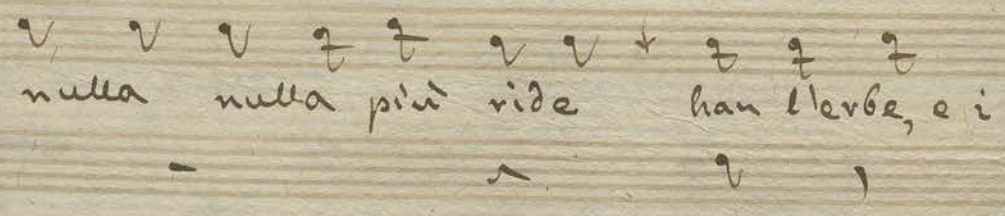 nulla nulla più ride han l'erbe, e i